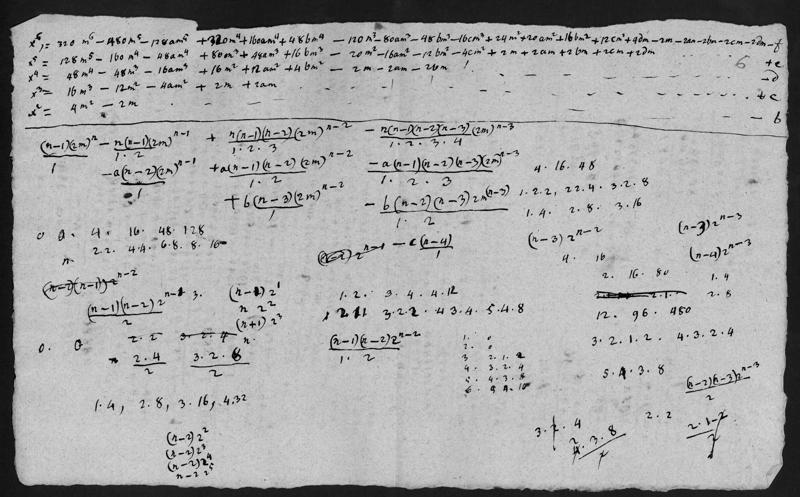 x⁶ = 320 m⁶ − 480 m⁵ − 128am⁵ + 320m⁴ + 160am⁴ + 48bm⁴ − 120m³ − 80am³ − 48bm³ − 16cm³ + 24m² + 20am² + 16bm² + 12cm² + 4dm − 2m − 2am − 2bm − 2cm − 2dm − f
x⁵ = 128m⁵ − 160m⁴ − 48am⁴ + 80m³ + 48am³ + 16bm³ − 20m² − 16am² − 12bm² − 4cm² + 2m + 2am + 2bm + 2cm + 2dm + e
x⁴ = 48m⁴ − 48m³ − 16am³ + 16m² + 12am² + 4bm² − 2m − 2am − 2bm − d
x³ = 16m³ − 12m² − 4am² + 2m + 2am + c
x² = 4m² − 2m − b
(n−1)(2m)ⁿ/1 − n(n−1)(2m)ⁿ⁻¹/1·2 + n(n−1)(n−2)(2m)ⁿ⁻²/1·2·3 − n(n−1)(n−2)(n−3)(2m)ⁿ⁻³/1·2·3·4
−a(n−2)(2m)ⁿ⁻¹/1 + a(n−1)(n−2)(2m)ⁿ⁻²/1·2 − a(n−1)(n−2)(n−3)(2m)ⁿ⁻³/1·2·3 4·16·48
+ b(n−3)(2m)ⁿ⁻²/1 − b(n−2)(n−3)2m⁽ⁿ⁻³⁾/1·2 1·2·2, 2 2·4· 3·2·8
1·4· 2·8· 3·16
0 0· 4· 16· 48· 128 − c(n−4)/1 (n−3)2ⁿ⁻² (n−3)2ⁿ⁻³
n· 2 2· 4 4· 6·8· 8·16 4· 16 (n−4)2ⁿ⁻³
2· 16· 80 1·4
(n−1)(n−2)2ⁿ⁻²/2 3· 1·2· 3·4· 4·12 2·8
n 2² 12· 96· 480
(n+1)2³ 3·2·2· 4 3 4· 5·4·8
0· 0 2·2 n· (n−1)(n−2)2ⁿ⁻²/1·2 3·2·1·2· 4·3·2·4
2·4/2 3·2·8/2 1· 0
2· 0
3 2·1·2
4· 3·2·4 5·4·3·8
5· 4·3·8 (n−2)(n−3)2ⁿ⁻³/2
1·4, 2·8, 3·16, 4·32
3·2·4 2·2
4·3·8
(n−2)2²
(n−2)2³
(n−2)2⁴
n−2 2⁵